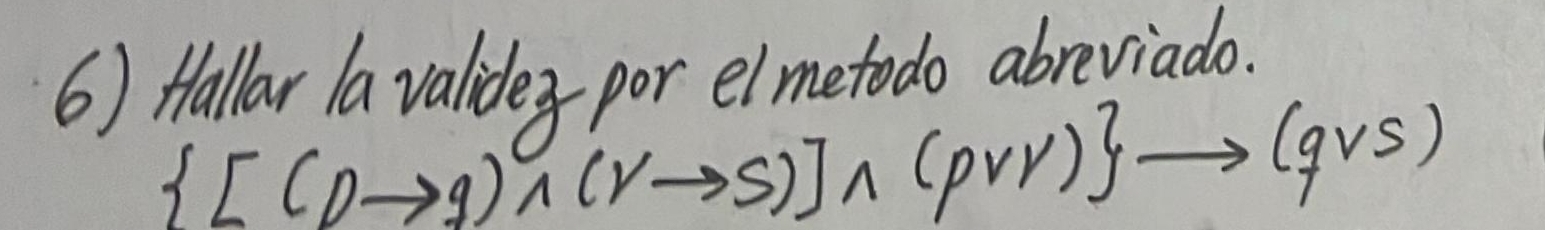 6) Hallar la validez por el metodo abreviado.
{[(p→q)∧(r→s)]∧(p∨r)}→(q∨s)